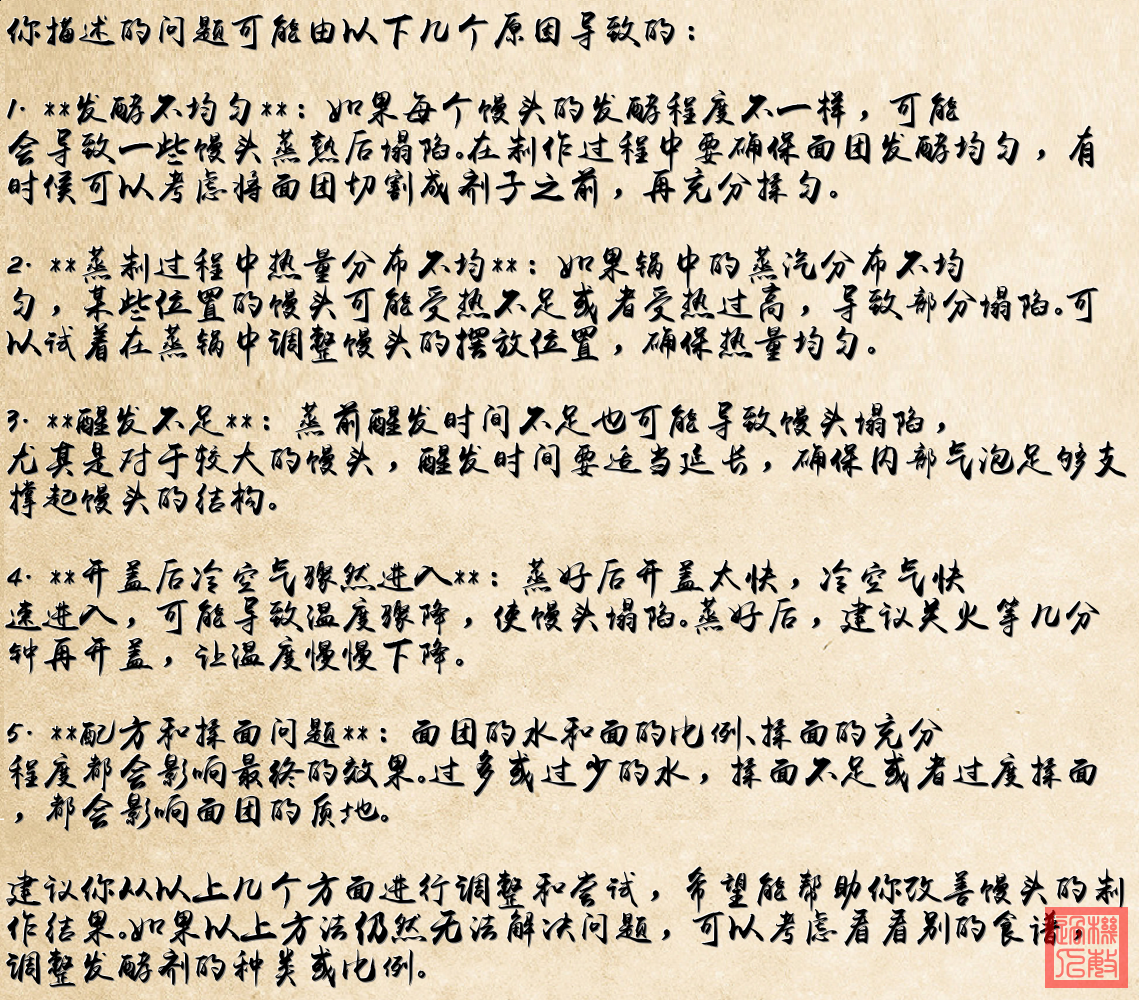 你描述的问题可能由以下几个原因导致的：
1. **发酵不均匀**：如果每个馒头的发酵程度不一样，可能
会导致一些馒头蒸熟后塌陷。在制作过程中要确保面团发酵均匀，有
时候可以考虑将面团切割成剂子之前，再充分揉匀。
2. **蒸制过程中热量分布不均**：如果锅中的蒸汽分布不均
匀，某些位置的馒头可能受热不足或者受热过高，导致部分塌陷。可
以试着在蒸锅中调整馒头的摆放位置，确保热量均匀。
3. **醒发不足**：蒸前醒发时间不足也可能导致馒头塌陷，
尤其是对于较大的馒头，醒发时间要适当延长，确保内部气泡足够支
撑起馒头的结构。
4. **开盖后冷空气骤然进入**：蒸好后开盖太快，冷空气快
速进入，可能导致温度骤降，使馒头塌陷。蒸好后，建议关火等几分
钟再开盖，让温度慢慢下降。
5. **配方和揉面问题**：面团的水和面的比例、揉面的充分
程度都会影响最终的效果。过多或过少的水，揉面不足或者过度揉面
，都会影响面团的质地。
建议你从以上几个方面进行调整和尝试，希望能帮助你改善馒头的制
作结果。如果以上方法仍然无法解决问题，可以考虑看看别的食谱，
调整发酵剂的种类或比例。